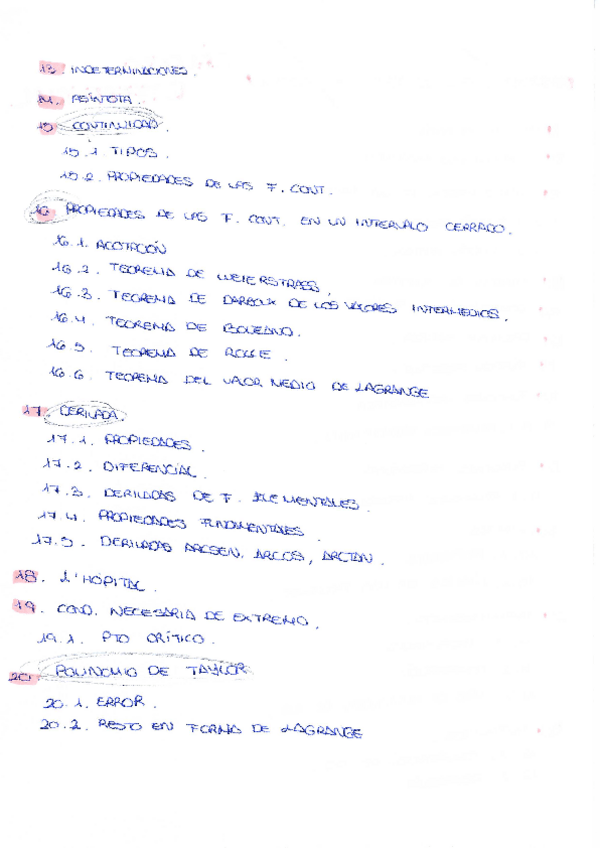 13. INDETERMINACIONES.
14. ASÍNTOTA.
15. CONTINUIDAD.
15.1. TIPOS.
15.2. PROPIEDADES DE LAS F. CONT.
16. PROPIEDADES DE LAS F. CONT. EN UN INTERVALO CERRADO.
16.1. ACOTACIÓN
16.2. TEOREMA DE WEIERSTRASS.
16.3. TEOREMA DE DARBOUX DE LOS VALORES INTERMEDIOS.
16.4. TEOREMA DE BOLZANO.
16.5. TEOREMA DE ROLLE.
16.6. TEOREMA DEL VALOR MEDIO DE LAGRANGE
17. DERIVADA.
17.1. PROPIEDADES.
17.2. DIFERENCIAL.
17.3. DERIVADAS DE F. ELEMENTALES.
17.4. PROPIEDADES FUNDAMENTALES.
17.5. DERIVADAS ARCSEN, ARCOS, ARCTAN.
18. L'HÔPITAL.
19. COND. NECESARIA DE EXTREMO.
19.1. PTO CRÍTICO.
20. POLINOMIO DE TAYLOR
20.1. ERROR.
20.2. RESTO EN FORMA DE LAGRANGE